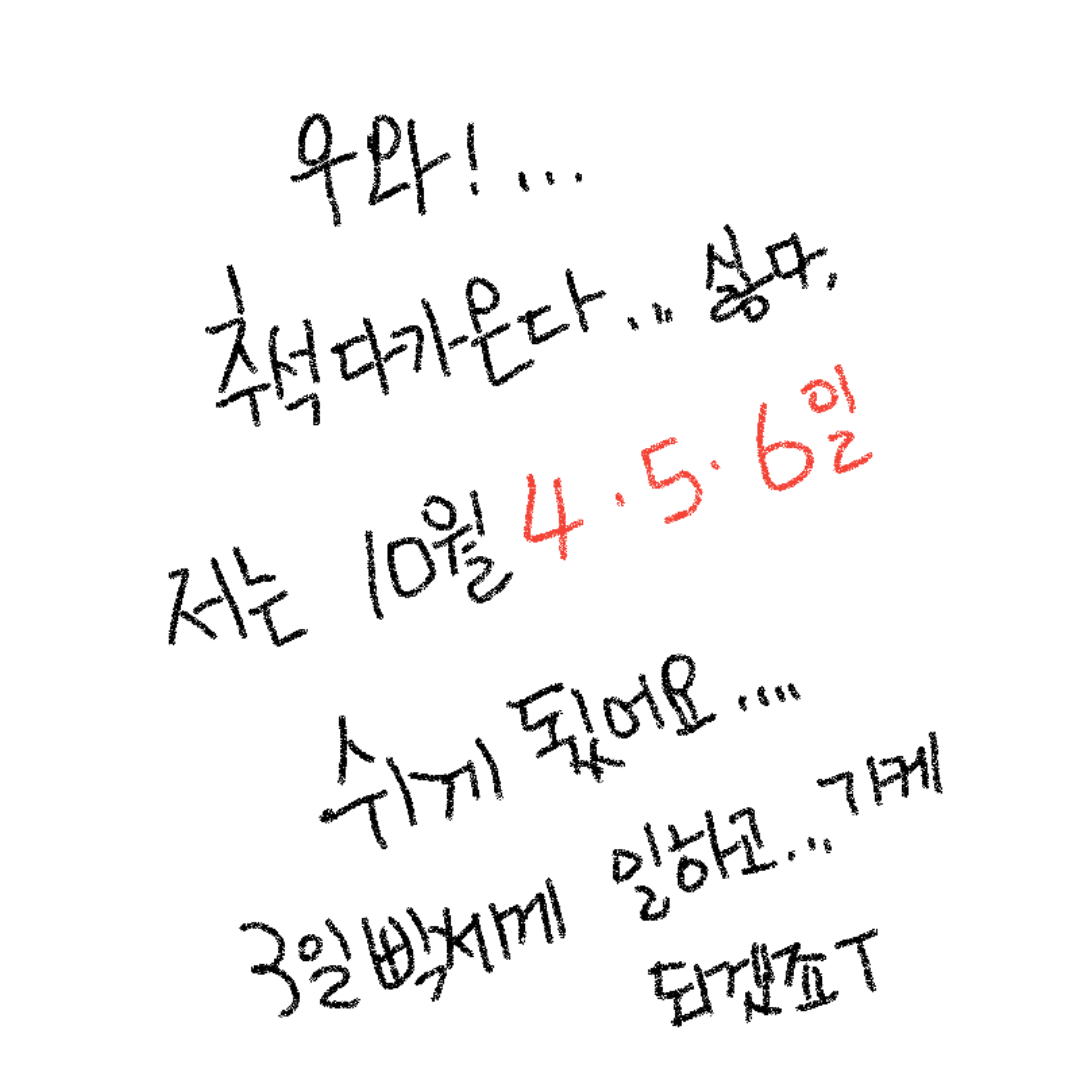 우와!...
추석다가온다... 싫다,
저는 10월 4.5.6일
쉬게 됬어요....
3일빡시게 일하고... 가게
되겠죠ㅜ